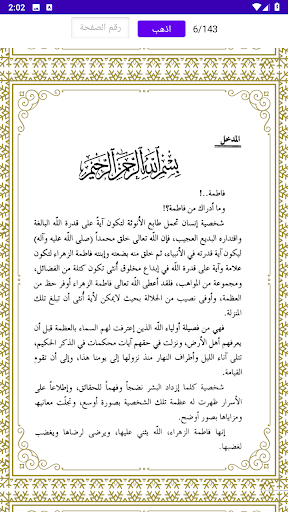 2:02
رقم الصفحة
اذهب
6/143
المدخل
بسم الله الرحمن الرحيم
فاطمة..!
وما أدراك من فاطمة؟!
شخصية إنسان تحمل طابع الأنوثة لتكون آيةً على قدرة الله البالغة
واقتداره البديع العجيب، فإن الله تعالى خلق محمداً (صلى الله عليه وآله)
ليكون آية قدرته في الأنبياء، ثم خلق منه بضعته وإبنته فاطمة الزهراء لتكون
علامة وآية على قدرة الله في إبداع مخلوق أنثى تكون كتلة من الفضائل،
ومجموعة من المواهب، فلقد أعطى الله تعالى فاطمة الزهراء أوفر حظ من
العظمة، وأوفى نصيب من الجلالة بحيث لايمكن لأية أنثى أن تبلغ تلك
المنزلة.
فهي من فصيلة أولياء الله الذين إعترفت لهم السماء بالعظمة قبل أن
يعرفهم أهل الأرض، ونزلت في حقهم آيات محكمات في الذكر الحكيم،
تتلى آناء الليل وأطراف النهار منذ نزولها إلى يومنا هذا، وإلى أن تقوم
القيامة.
شخصية كلما إزداد البشر نضجاً وفهماً للحقائق، وإطلاعاً على
الأسرار ظهرت له عظمة تلك الشخصية بصورة أوسع، وتجلّت معانيها
ومزاياها بصور أوضح.
إنها فاطمة الزهراء، الله يثني عليها، ويرضى لرضاها ويغضب
لغضبها.